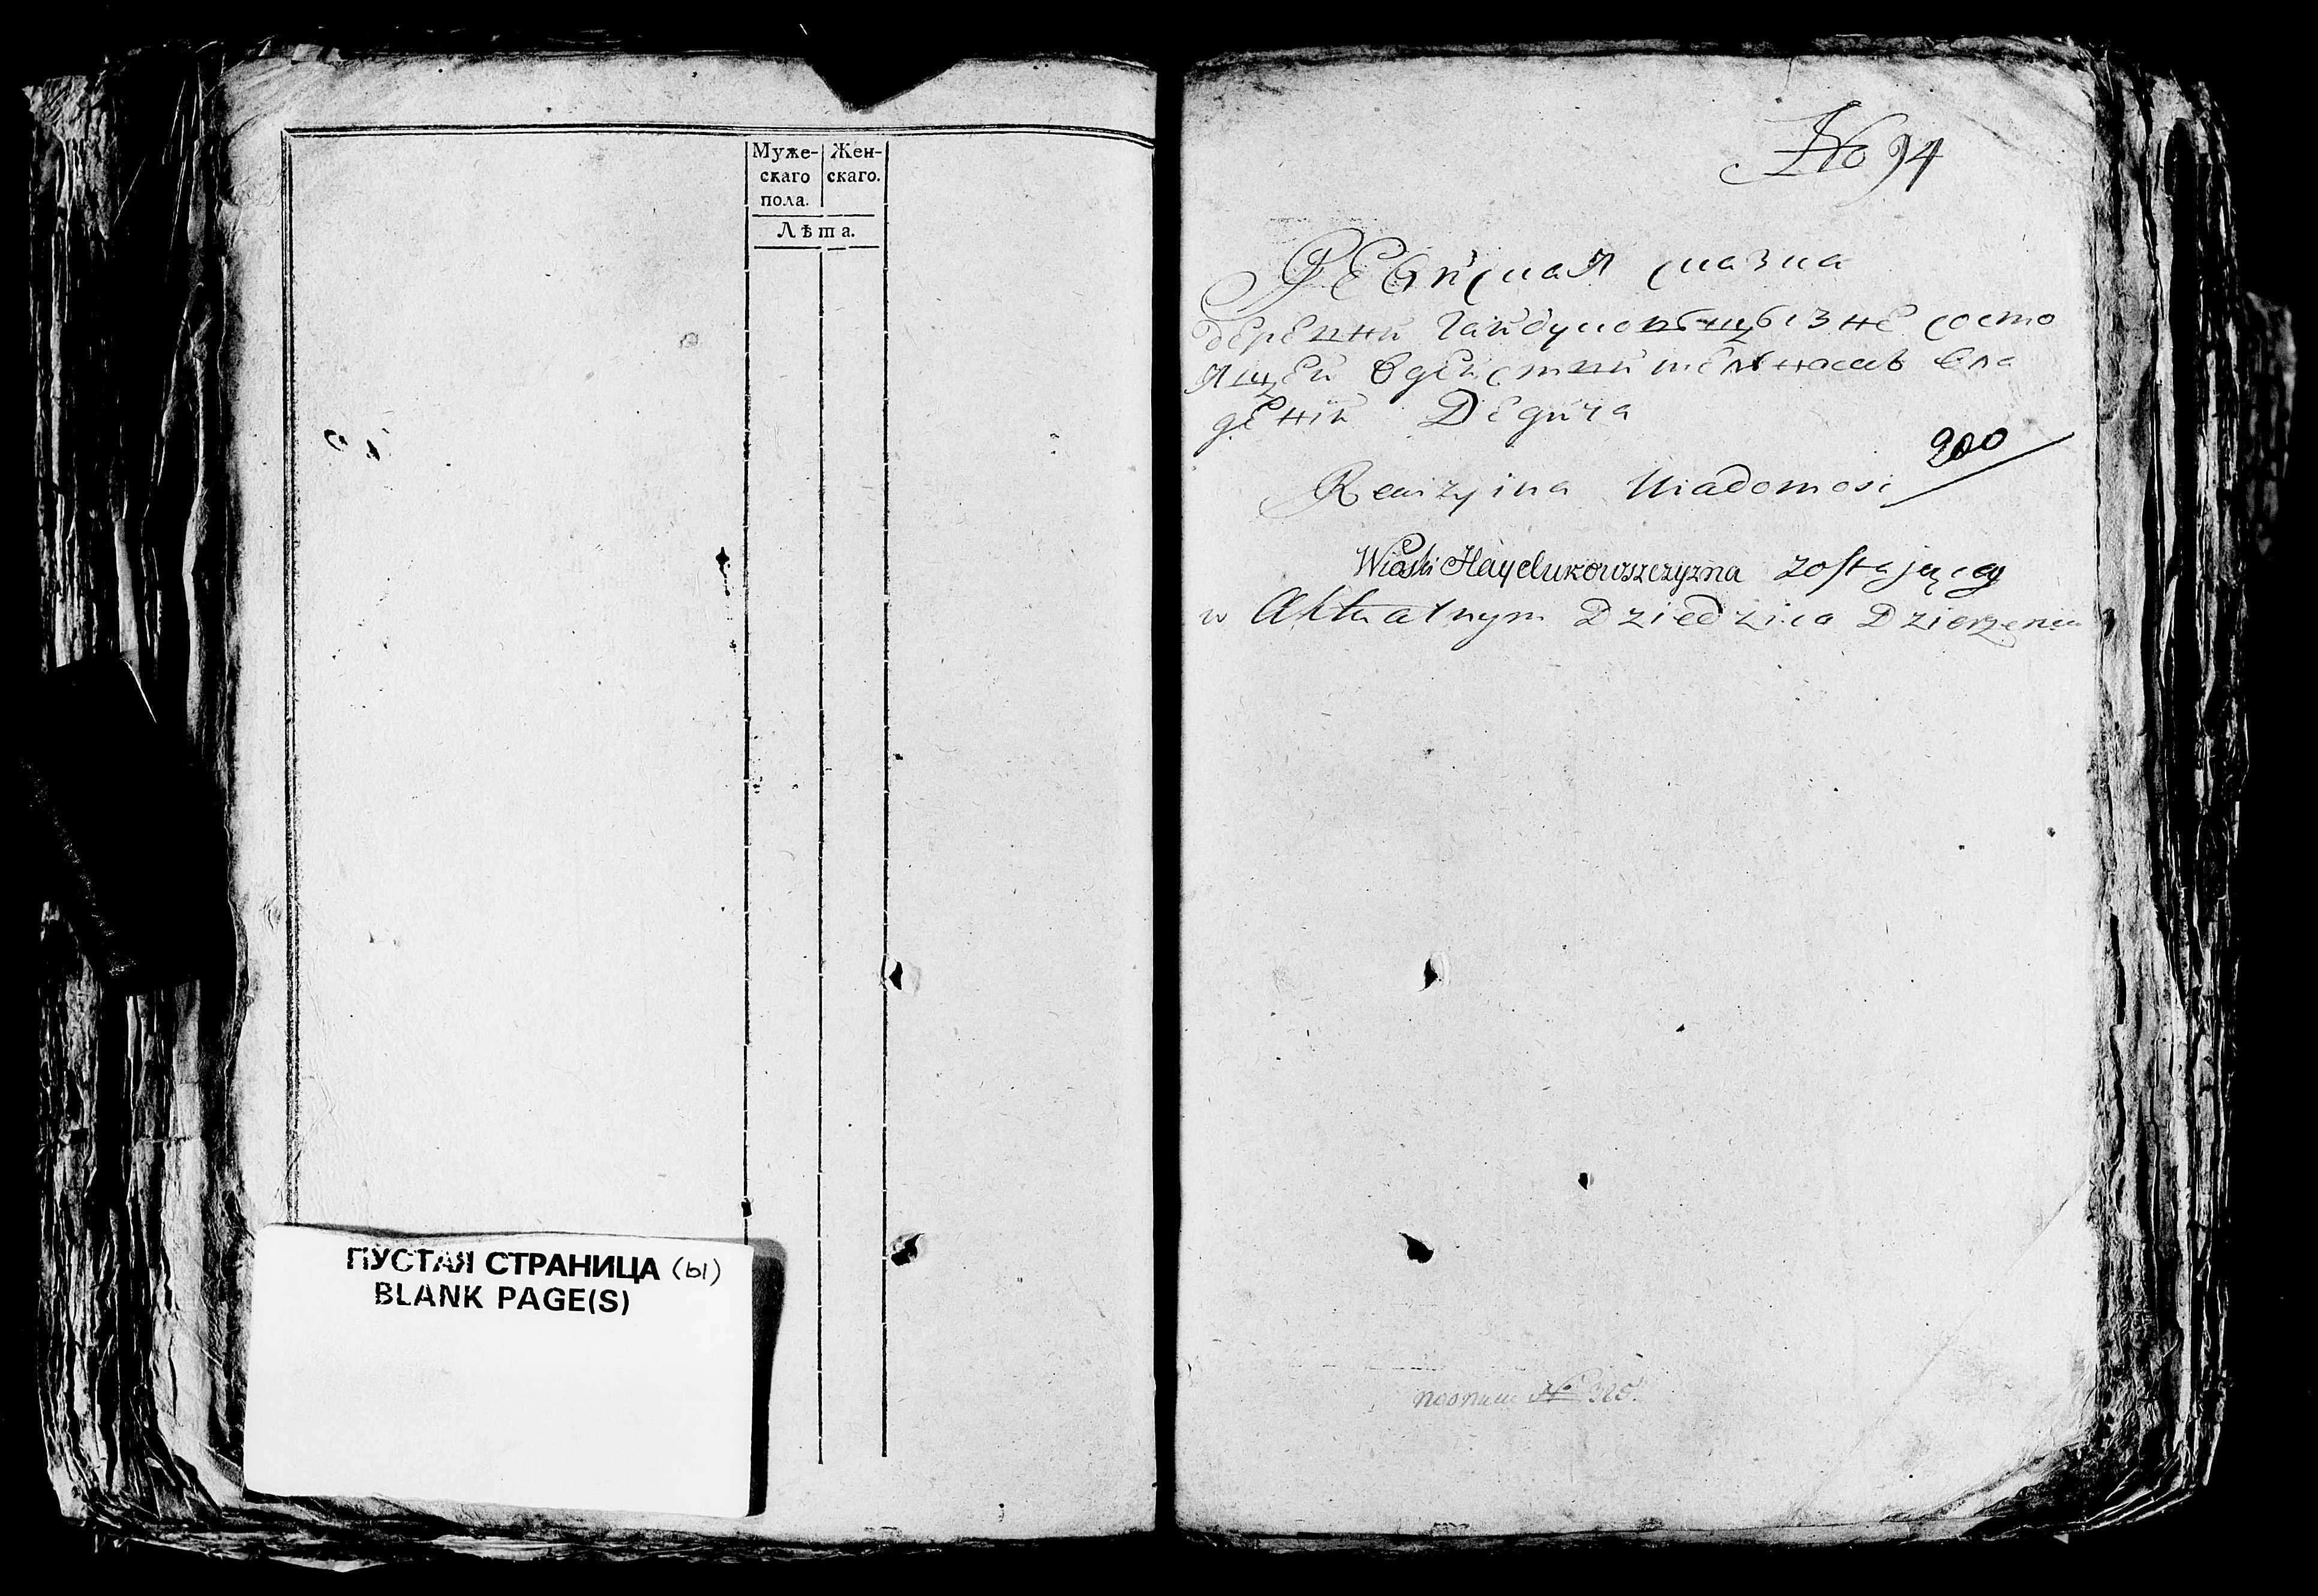 Муже-
скаго
пола.
Жен-
скаго.
Лѣта.
ПУСТАЯ СТРАНИЦА (ы)
BLANK PAGE(S)
No 94
РЕвизская сказка
деревни Гайдуковщызне состо
ящей вдействительносмъ вла
дений Дедича
200
Rewizyina Wiadomosc
Wioski Haydukowszczyzna zostającey
w Aktualnym Dziedzica Dzierzeniu